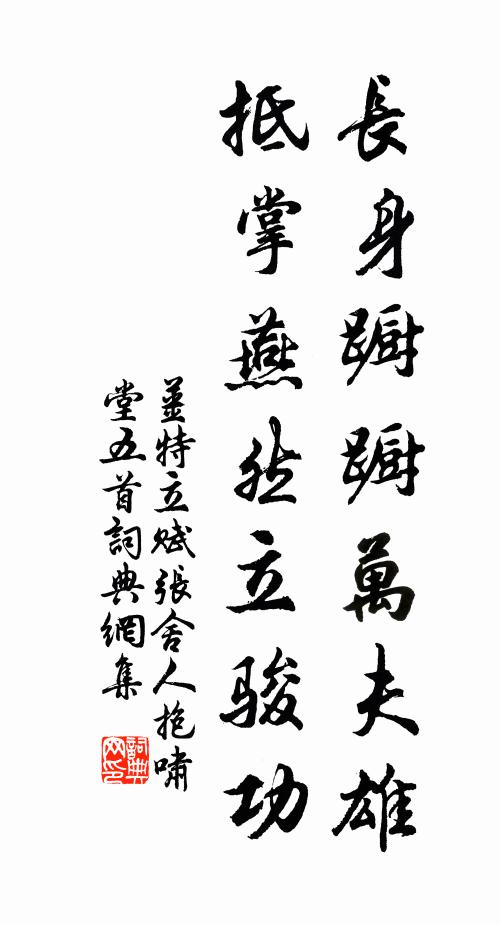 長身蹰蹰萬夫雄
抵掌燕然立骏功
薑特立賦張舍人抱嘯
堂五首詞典網集
詞典网印